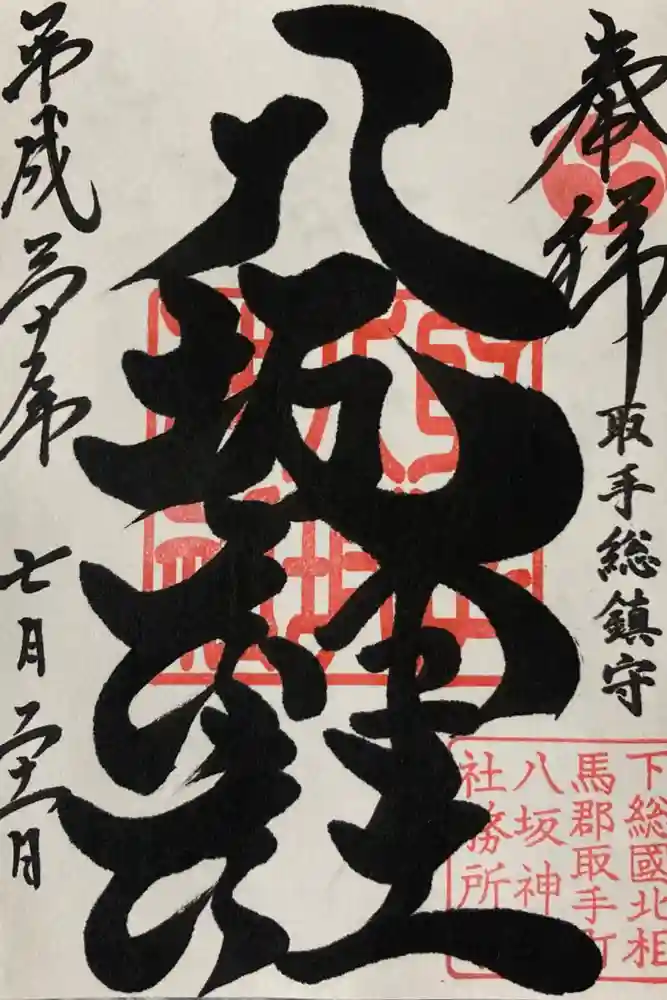 奉拝
取手総鎮守
八坂神社
平成三十年
七月二十一日
下総國北相
馬郡取手町
八坂神
社務所